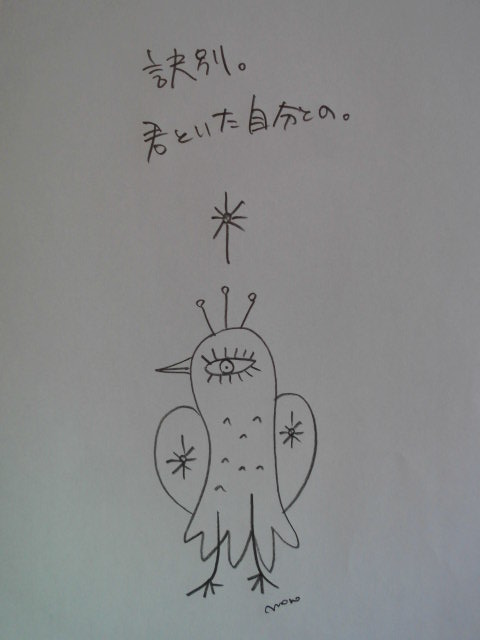 訣別。
君といた自分との。